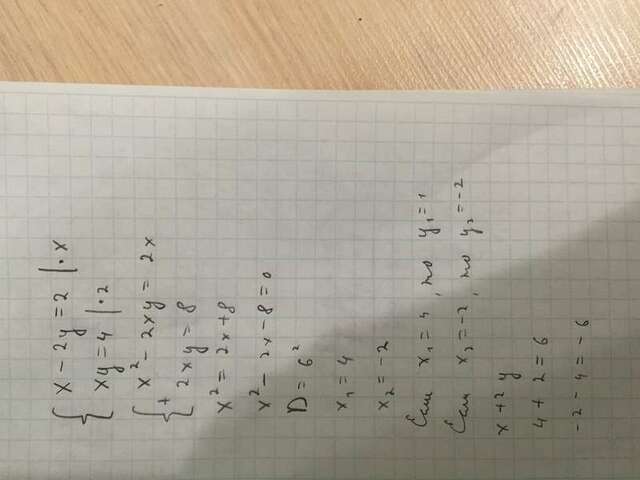 { x - 2y = 2 | · x
xy = 4 | · 2
{ x² - 2xy = 2x
+ 2xy = 8
x² = 2x + 8
x² - 2x - 8 = 0
D = 6²
x₁ = 4
x₂ = -2
Если x₁ = 4, то y₁ = 1
Если x₂ = -2, то y₂ = -2
x + 2y
4 + 2 = 6
-2 - 4 = -6